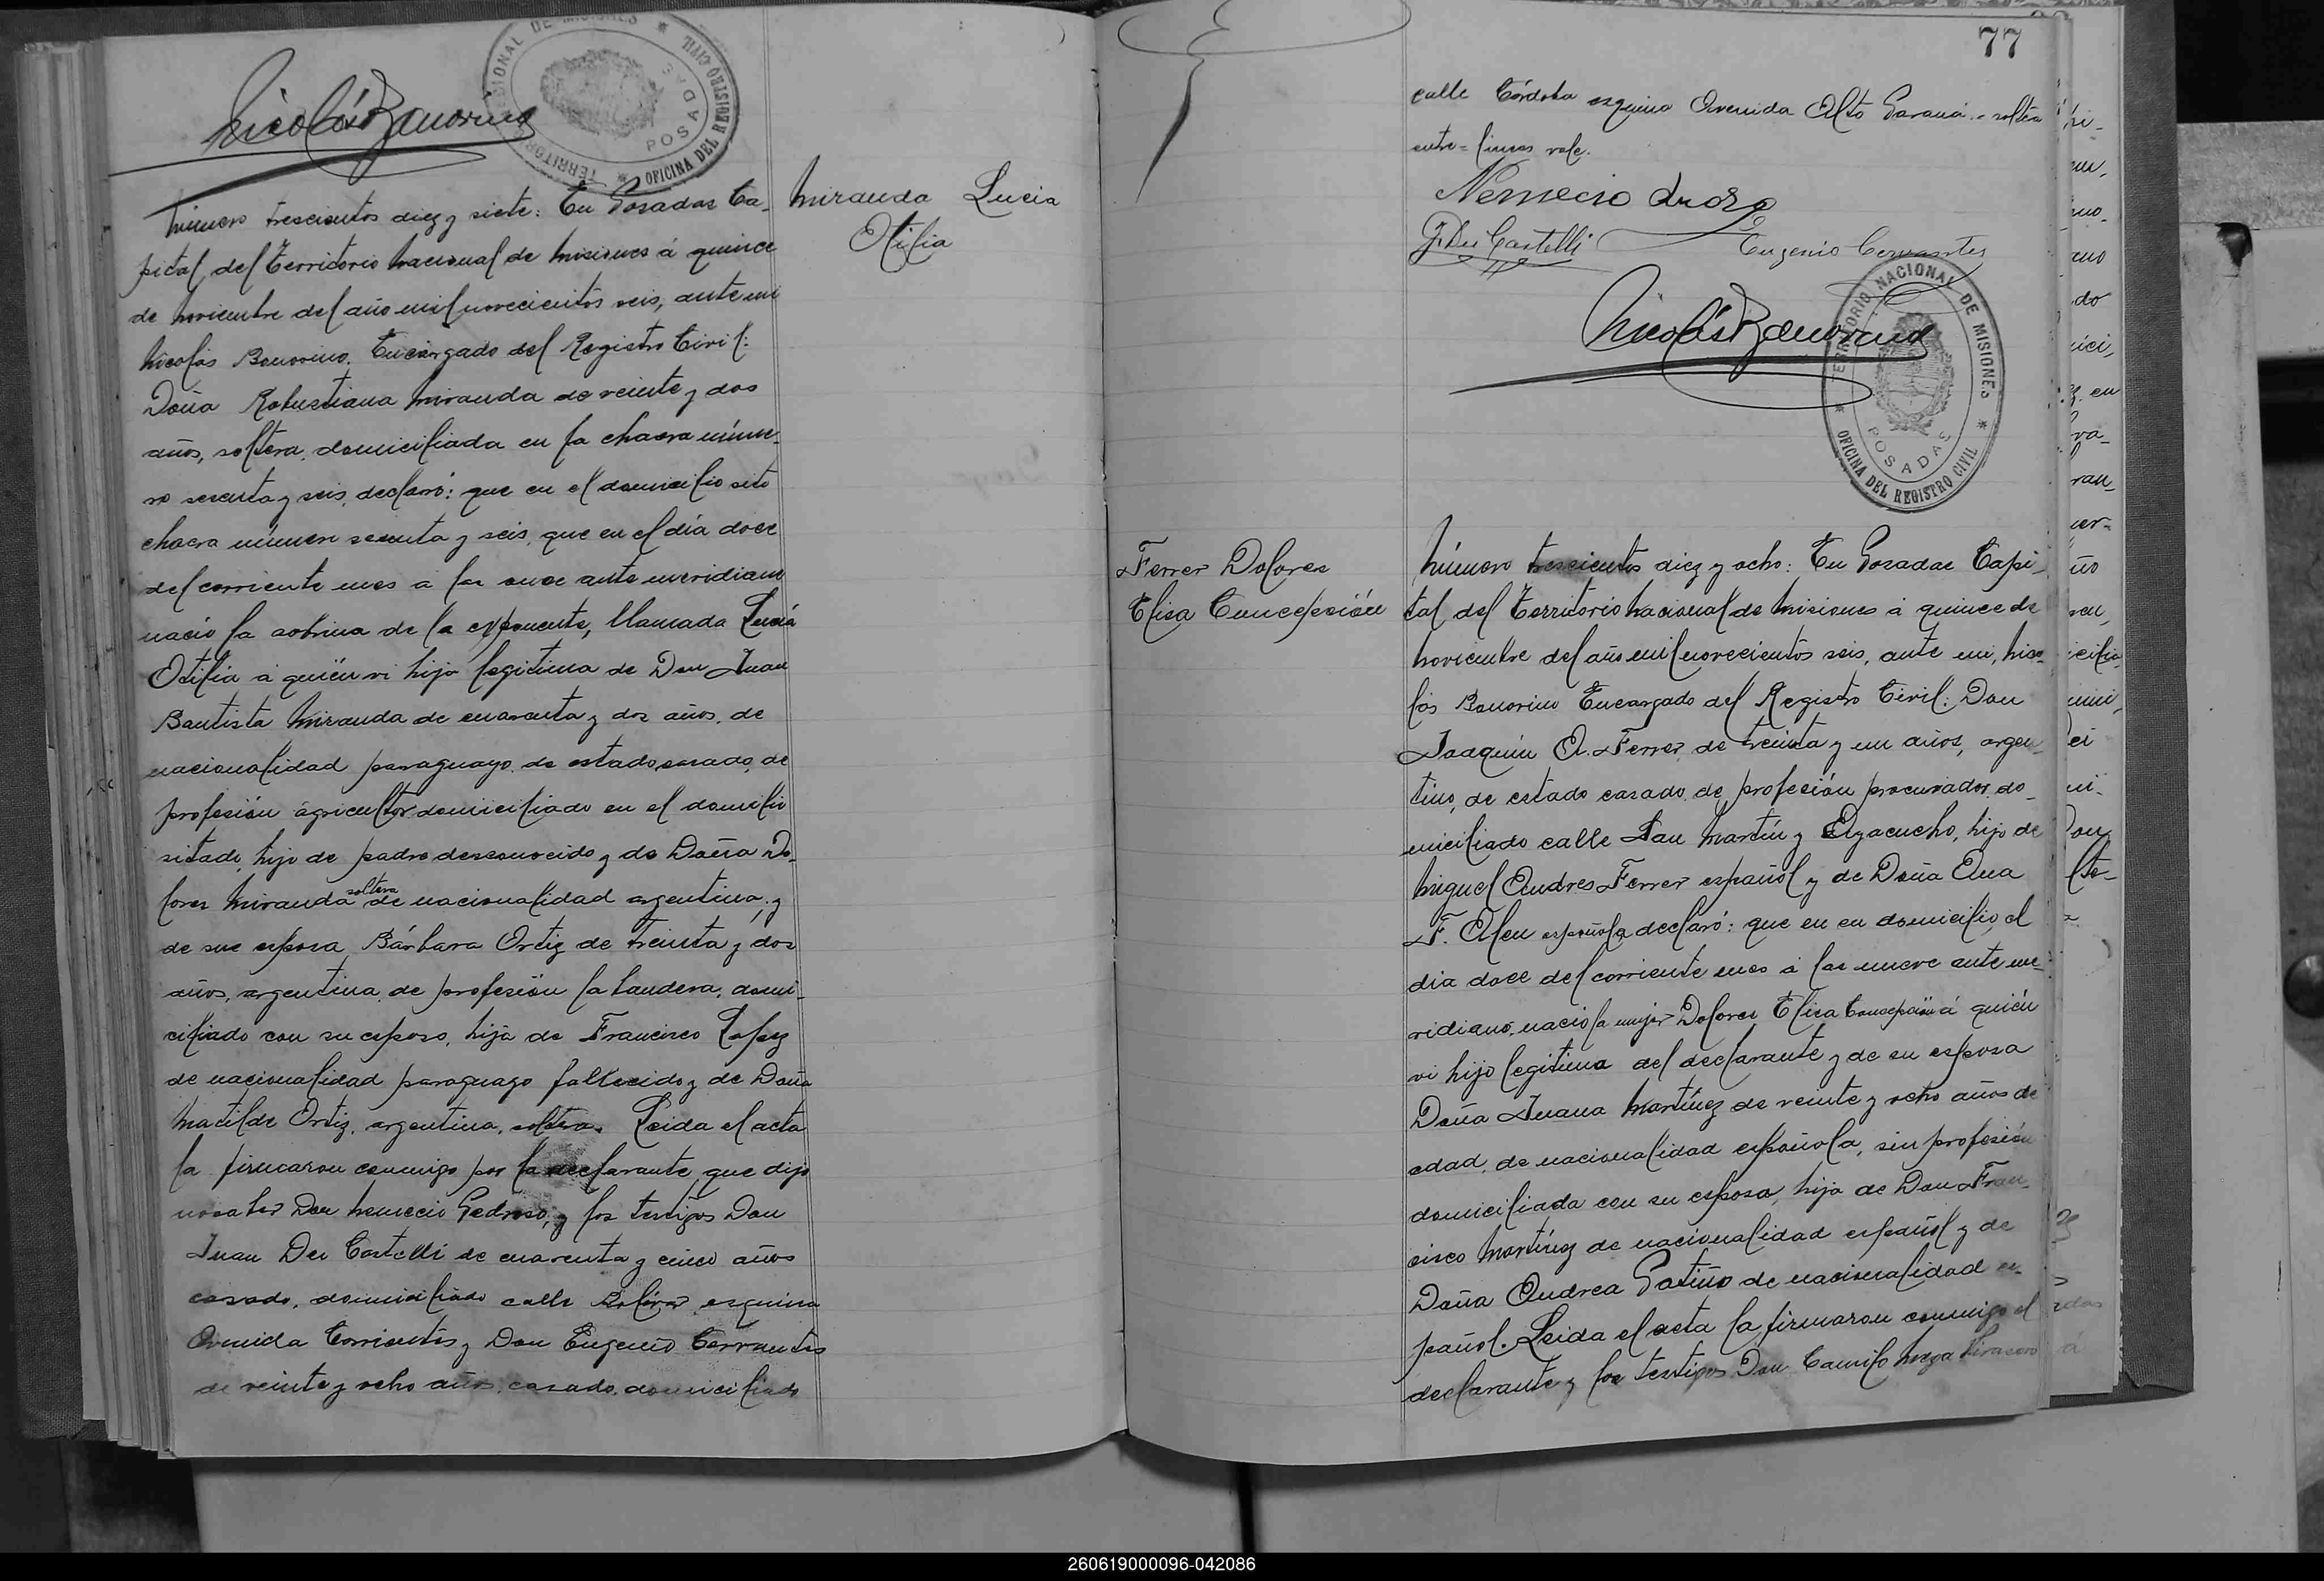 Nicolás Bonorino
TERRITORIO NACIONAL DE MISIONES * OFICINA DEL REGISTRO CIVIL * POSADAS
Miranda Lucia
Otilia
Número trescientos diez y siete: En Posadas Ca-
pital, del Territorio Nacional de Misiones á quince
de Noviembre del año mil novecientos seis, ante mi
Nicolás Bonorino, Encargado del Registro Civil:
Doña Robustiana Miranda de veinte y dos
años, soltera, domiciliada en la chacra núme-
ro sesenta y seis, declaró: que en el domicilio sito
chacra número sesenta y seis, que en el día doce
del corriente mes a las once ante meridiano
nació la sobrina de la exponente, llamada Lucía
Otilia á quién vi hija legitima de Don Juan
Bautista Miranda de cuarenta y dos años, de
nacionalidad paraguayo, de estado casado, de
profesión agricultor domiciliado en el domilio
sitado, hijo de padre desconocido y de Doña Do-
lores Miranda soltera de nacionalidad argentina, y
de sue esposa, Bárbara Ortiz de treinta y dos
años, argentina, de profesión labandera, domi-
ciliado con su esposo, hija de Francisco Lopez
de nacionalidad paraguayo fallecido y de Doña
Matilde Ortiz, argentina, soltera. Leida el acta
la firmaron conmigo por la declarante que dijo
no saber Don Nemecio Pedroso, y los testigos Don
Juan Dei Castelli de cuarenta y cinco años
casado, domiciliado calle Bolívar esquina
Avenida Corrientes y Don Eugenio Cervantes
de veinte y ocho años, casado, domiciliado
77
calle Córdoba esquina Avenida Alto Paraná. = soltera
entre = lineas vale.
Nemecio
J. Dei Castelli Eugenio Cervantes
Nicolás Bonorino
TERRITORIO NACIONAL DE MISIONES * OFICINA DEL REGISTRO CIVIL * POSADAS
Ferrer Dolores
Elisa Concepción
Número trescientos diez y ocho: En Posadas Capi-
tal del Territorio Nacional de Misiones á quince de
Noviembre del año mil novecientos seis, ante mi, Nico-
lás Bonorino Encargado del Registro Civil: Don
Joaquín A. Ferrer, de treinta y un años, argen-
tino, de estado casado, de profesión procurador, do-
miciliado calle San Martín y Ayacucho, hijo de
Miguel Andres Ferrer español y de Doña Ana
F. Aleu española declaró: que en su domicilio, el
dia doce del corriente mes á las nueve ante me-
ridiano, nacio la mujer Dolores Elisa Concepción á quién
vi hija legitima del declarante y de su esposa
Doña Juana Martínez de veinte y ocho años de
edad, de nacionalidad española, sin profesión
domiciliada con su esposa, hija de Don Fran-
cisco Martínez de nacionalidad español y de
Doña Andrea Patiño de nacionalidad es-
pañol. Leida el acta la firmaron conmigo el
declarante y los testigos Don Camilo
260619000096-042086